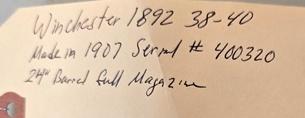 Winchester 1892 38-40
Made in 1907 Serial # 400320
24" Barrel full Magazine